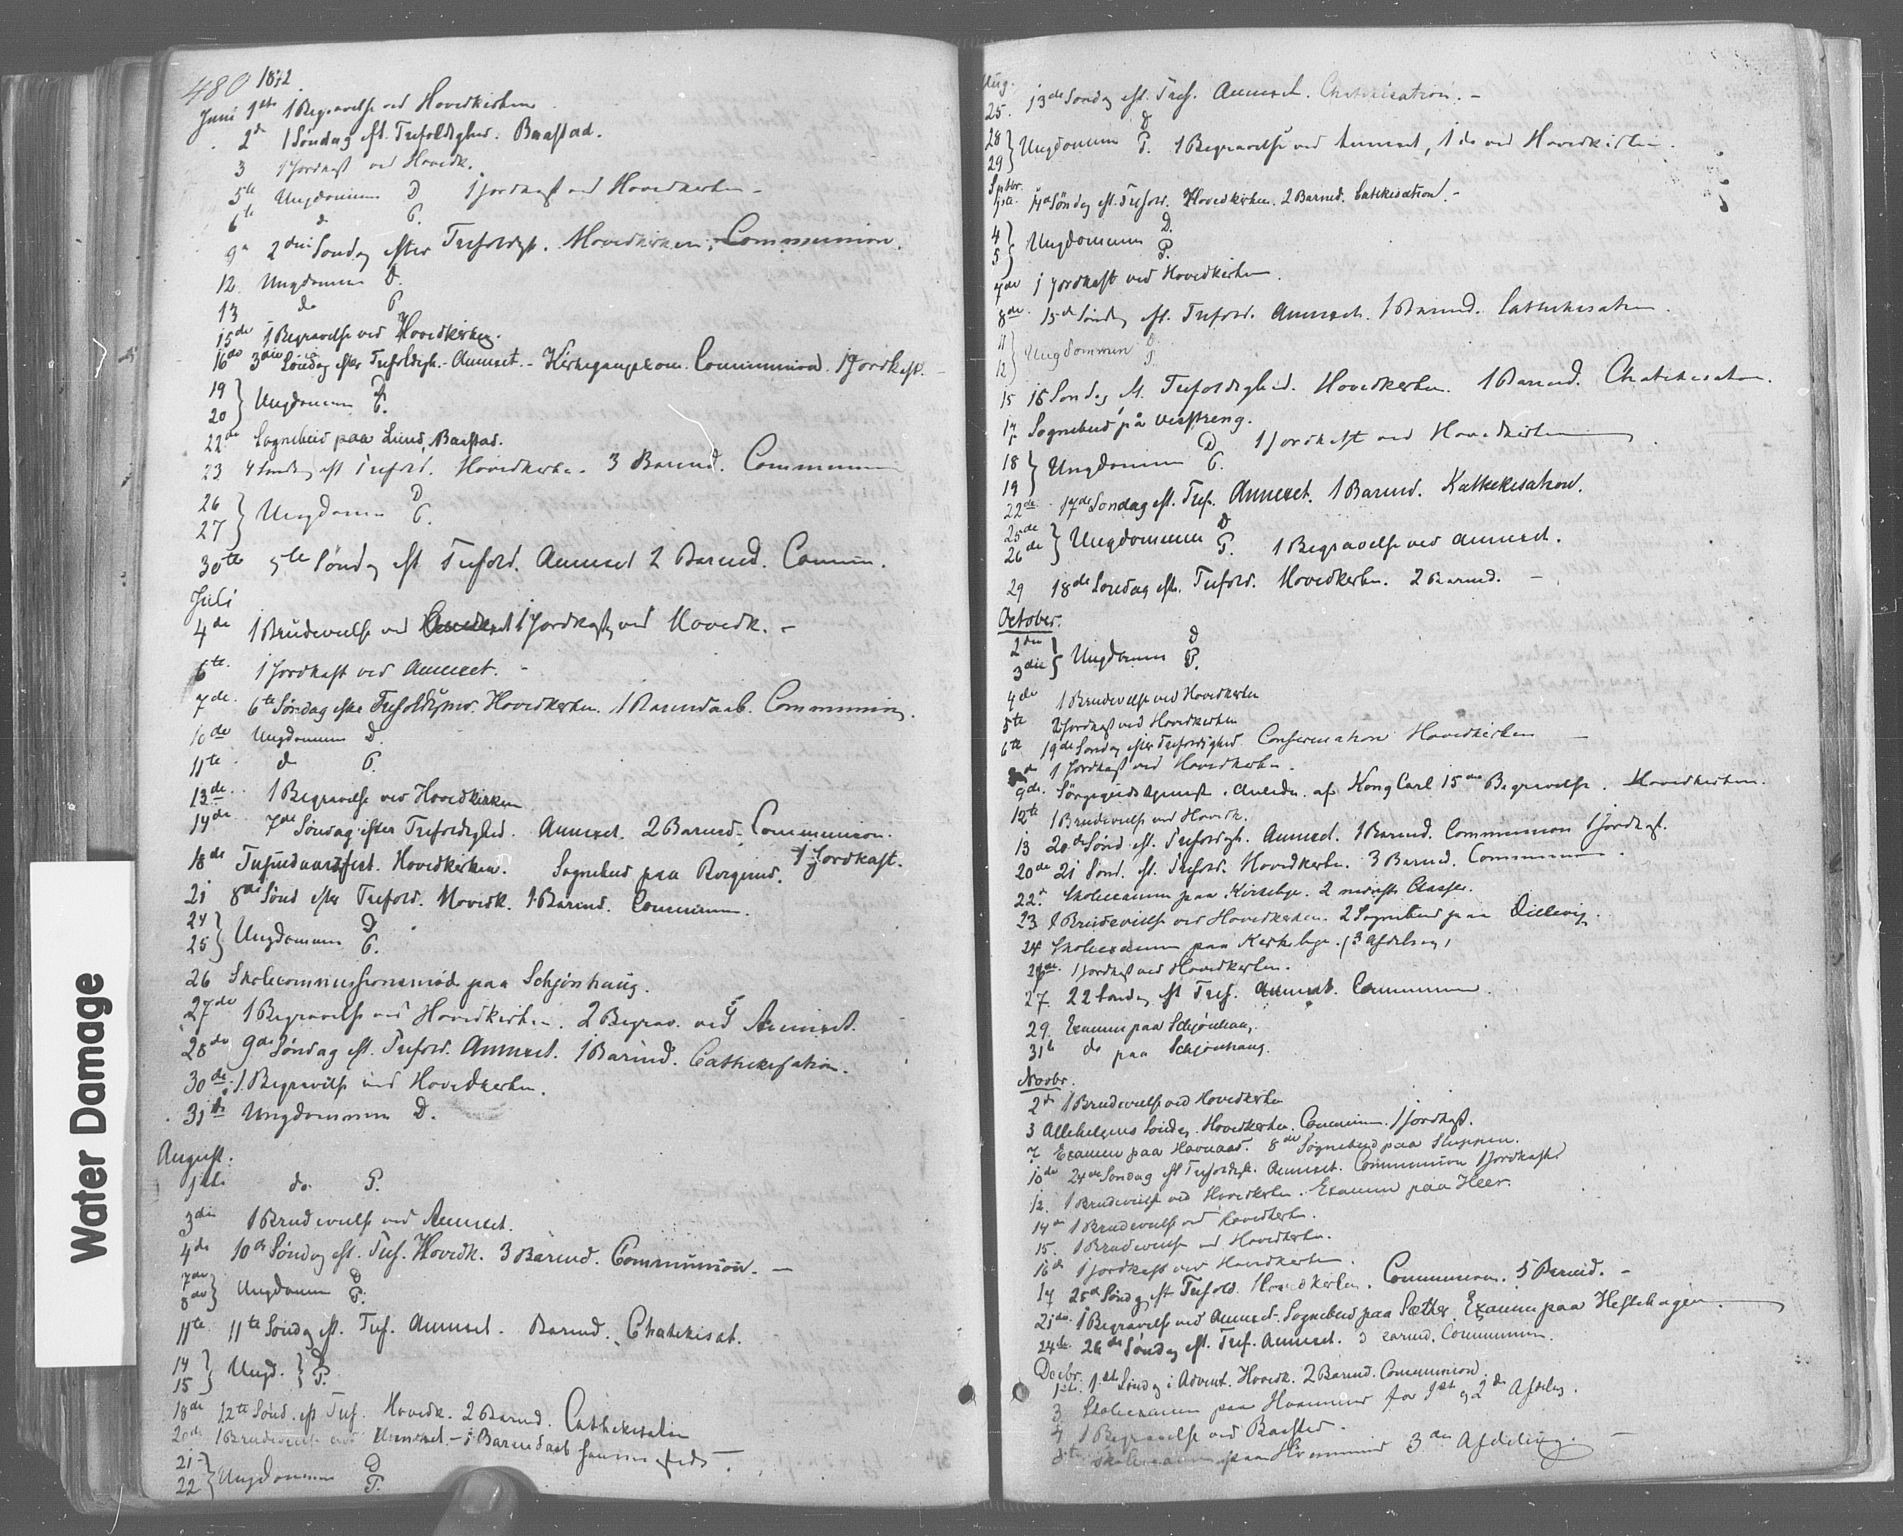 480 1872.
Juni 1ste 1 Begravelse ved Hovedkirken
2den 1 Søndag eft. Trefoldighed. Baastad.
3 1 Jordkast ved Hovedk.
5te Ungdommen D 1 Jordkast ved Hovedkirken –
6te d P.
9n 2den Søndag efter Trefoldigh. Hovedkirken. Communion.
12 Ungdommen D.
13 do P.
15de 1 Begravelse ved Hovedkirken.
16de 3die Søndag efter Trefoldigh. Annexet. – Kirkegangskom. Communion. 1 Jordkast. –
19 } Ungdommen D
20 } P.
22de Sognebud paa Lund, Baastad.
23 4 Søndag eft Trefold. Hovedkirken. 3 Barned. Communion
26 } Ungdommen D
27 } P.
30te 5te Søndag eft Trefold. Annexet 2 Barned. Commun.
Juli
4de 1 Brudevielse ved 1 Jordkast ved Hovedk. –
6te 1 Jordkast ved Annexet. –
7de 6te Søndag efter Hovedkirken. 1 Barnedaab. Communion.
10de Ungdommen D.
11te do P.
13de 1 Begravelse ved Hovedkirken
14de 7de Søndag efter Trefoldighed. Annexet. 2 Barned. Communion.
1 Jordkast.
18de Tusindaarsfest. Hovedkirken. Sognebud paa
21 8de Sønd efter Trefold. Hovedk. 1 Barned. Communion.
24 } Ungdommen D
25 } P.
26 Skolecommissionsmøde paa Schjønhaug.
27de 1 Begravelse ved Hovedkirken. 2 Begrav. ved Annexet.
28de 9de Søndag eft. Trefold. Annexet. 1 Barned. Cathekisation.
30de 1 Begravelse ved Hovedkirken.
31te Ungdommen D.
August.
1ste do P.
3die 1 Brudevielse ved Annexet.
4de 10de Søndag eft. Tref. Hovedk. 3 Barned. Communion. –
7de } Ungdommen D
8de } P.
11te 11te Søndag eft. Tref. Annexet. Barned. Chatekisat.
14 } Ungd. } D
15 } P.
18de 12te Sønd. eft Tref. Hovedk. 2 Barned. Cathekisation
20de 1 Brudevielse ved Annexet. – 1 Barnedaab
21 } Ungdommen D
22 } P.
Aug.
25. 13de Søndag eft. Tref. Annexet. Chatekisation. –
28 } Ungdommen D
29 } P. 1 Begravelse ved Annexet, 1 do ved Hovedkirken.
Septbr.
1ste 14de Søndag eft. Trefold. Hovedkirken. 2 Barned. Catekisation. –
4 } Ungdommen D.
5 } P.
7de 1 Jordkast ved Hovedkirken.
8de 15de Søndag eft. Trefold. Annexet. 1 Barned. Cattekisation.
11 } Ungdommen D.
12 } P.
15 16 Søndag eft. Trefoldighed. Hovedkirken. 1 Barned. Chatekisation.
17 Sognebud på
18 } Ungdommen D 1 Jordkast ved Hovedkirken
19 } P.
22de 17de Søndag eft. Tref. Annexet. 1 Barned. Kattekisation.
25de } Ungdommen D
26de } P. 1 Begravelse ved Annexet.
29 18de Søndag eft. Trefold. Hovedkirken. 2 Barned. –
October.
2den } Ungdommen D
3die } P.
4de 1 Brudevielse ved Hovedkirken
5te 2 Jordkast ved Hovedkirken
6te 19de Søndag efter Trefoldighed Confirmation Hovedkirken –
8de 1 Jordkast ved Hovedkirken.
9de Sørgegudstjeneste i Anledn. af Kong Carl 15des Begravelse. Hovedkirken.
12te 1 Brudevielse ved Hovedk.
13 20de Sønd eft. Trefoldigh. Annexet. 1 Barned. Communion 1 Jordkast.
20de 21 Sønd. eft. Trefold. Hovedkirken. 3 Barned. Communion.
22. Skoleexamen paa Kirkebye. 2 nederste Classer.
23 1 Brudevielse ved Hovedkirken. 2 Sognebud paa Dillevig.
24 Skoleexamen paa Kirkebye. (3 Afdeling)
1 Jordkast ved Hovedkirken.
27 22 Søndag eft Tref. Annexet. Communion.
29. Examen paa Schjønhaug.
31te do paa Schjønhaug.
Novbr.
2de 1 Brudevielse ved Hovedkirken
3 Allehelgens Søndag. Hovedkirken. Communion. 1 Jordkast.
7 Examen paa Havnaas. 8de Sognebud paa
10de 24de Søndag eft Trefoldigh. Annexet. Communion 1 Jordkast
12. 1 Brudevielse ved Hovedkirken. Examen paa Heer.
14de 1 Brudevielse ved Hovedkirken.
15. 1 Brudevielse ved Hovedkirken.
16de 1 Jordkast ved Hovedkirken.
17 25de Søndag eft Trefold. Hovedkirken. Communion. 5 Barned. –
21de 1 Begravelse ved Annexet. Sognebud paa Sæther. Examen paa Heslehagen.
24de 26de Søndag eft. Tref. Annexet. 3 Barned. Communion.
Decbr.
1ste 1ste Søndag i Advent. Hovedk. 2 Barned. Communion.
3 Skoleexamen paa for 1ste og 2den Afdeling.
4 1 Begravelse ved Baastad.
Skoleexamen paa 3die Afdeling. –
Water Damage